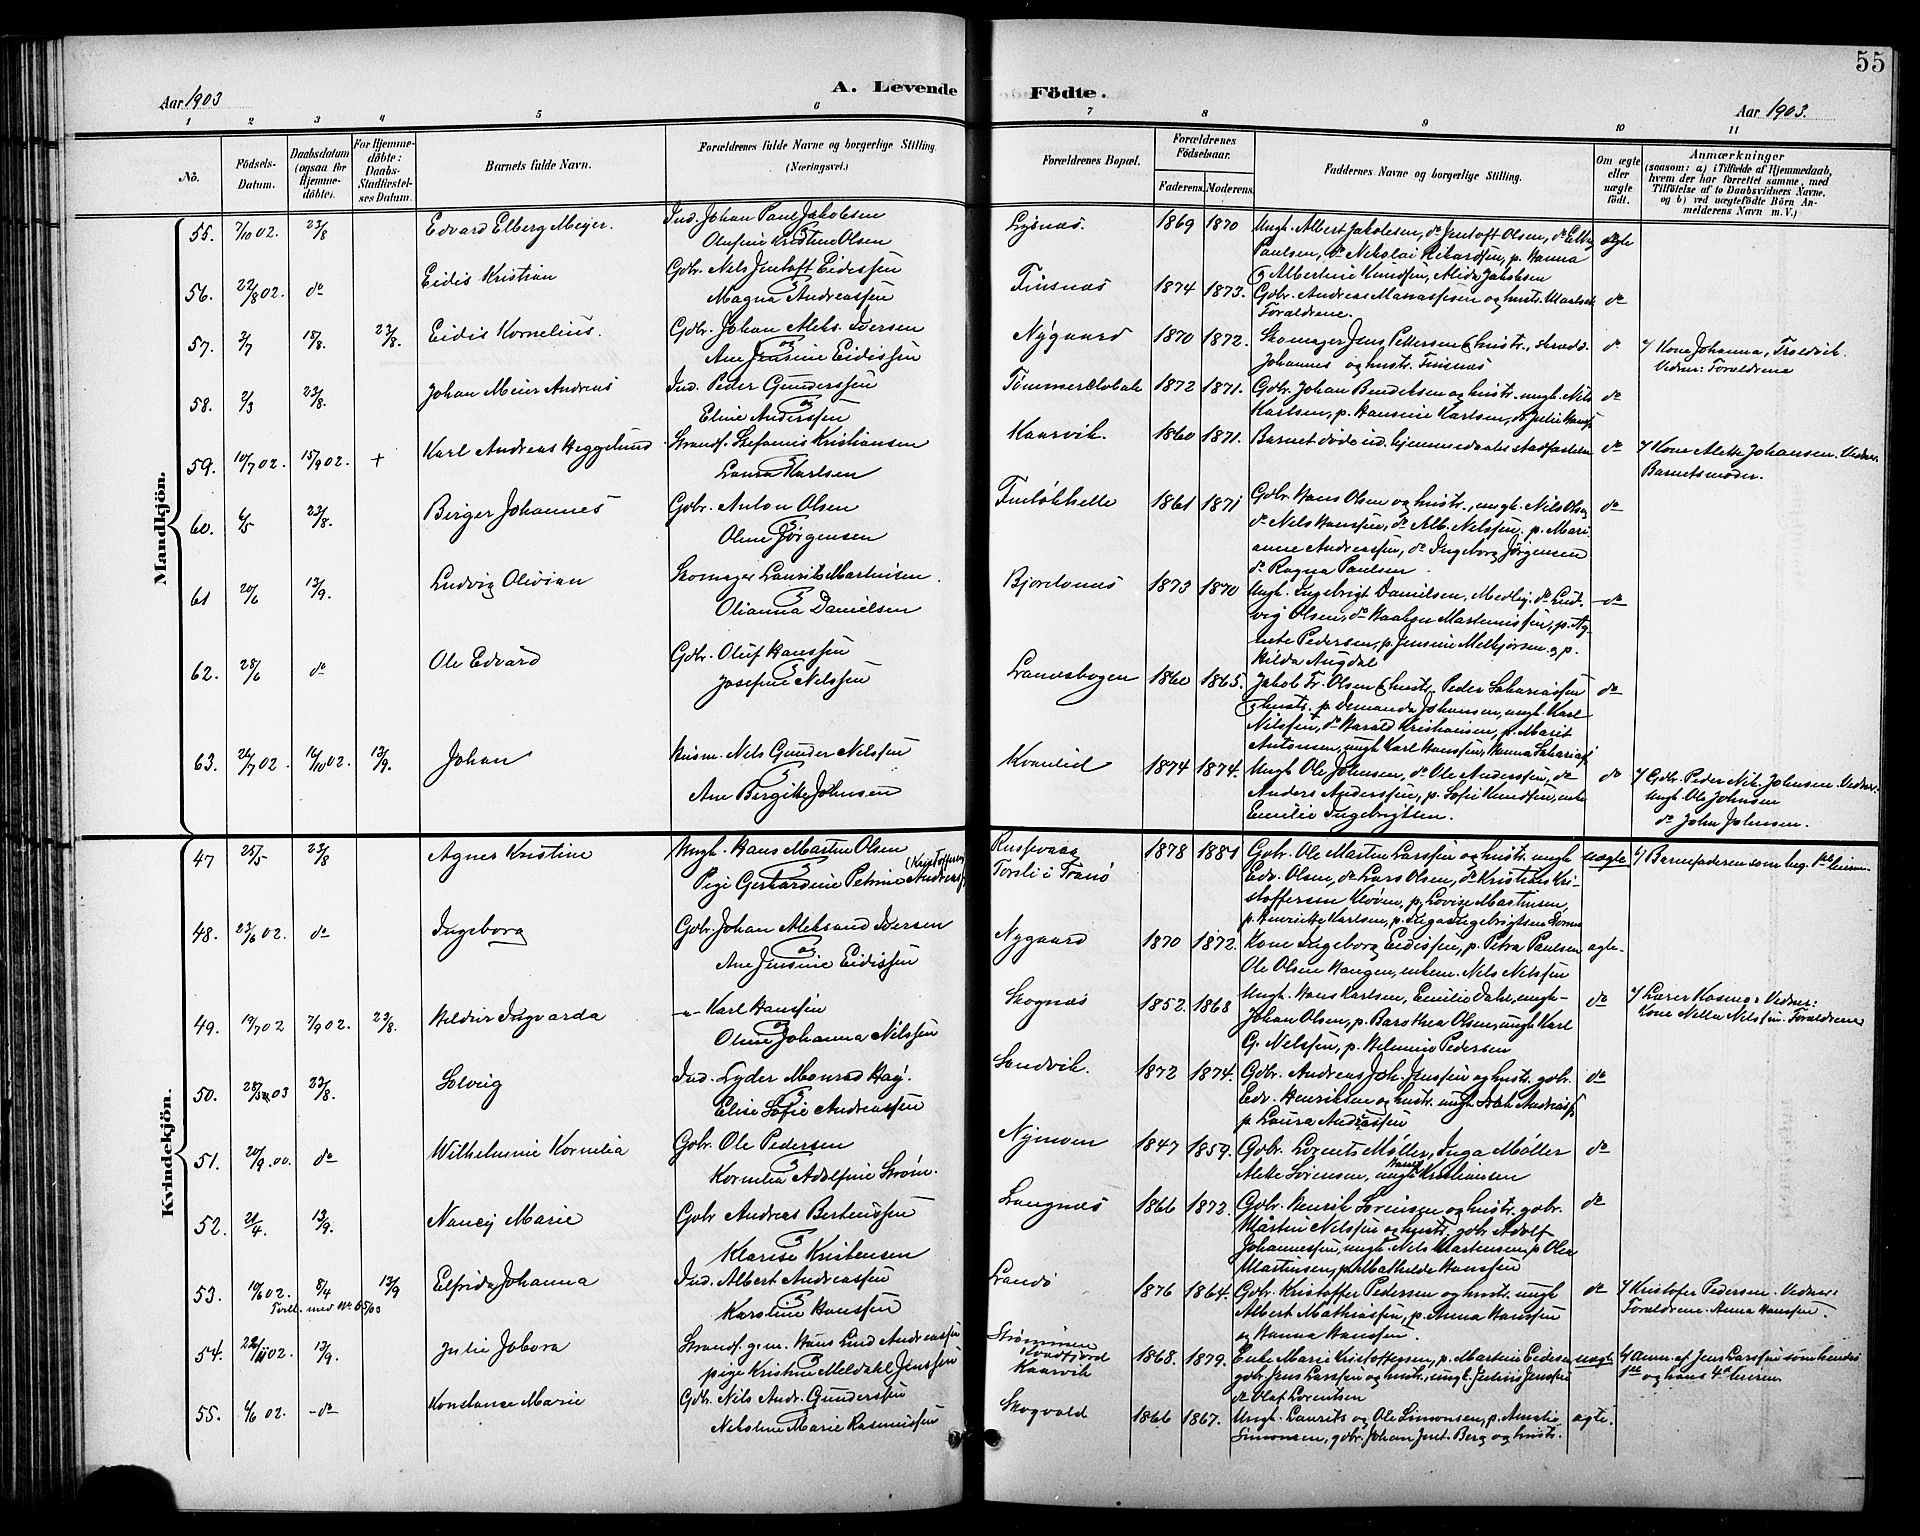 55
Aar 1903
A. Levende
Födte.
Aar 1903.
1 2 3 4 5 6 7 8 9 10 11
No.
Födsels-
Datum.
Daabsdatum
(ogsaa for
Hjemme-
döbte).
For Hjemme-
döbte:
Daabs-
Stadfæstel-
ses Datum.
Barnets fulde Navn.
Forældrenes fulde Navne og borgerlige Stilling.
(Næringsvei.)
Forældrenes Bopæl.
Forældrenes
Födselsaar.
Faderens. Moderens.
Faddernes Navne og borgerlige Stilling.
Om ægte
eller
uægte
født.
Anmærkninger
(saasom: a) i Tilfælde af Hjemmedaab,
hvem der har forrettet samme, med
Tilføielse af to Daabsvidners Navne,
og b) ved uægtefödte Börn An-
melderens Navn m. V.)
Mandkjön.
55. 7/10 02. 23/8 Edvard Elberg Meyer. Ind. Johan Paul Jakobsen
og
Olufine Kristine Olsen
Lysnæs. 1869 1870 Ungk. Albert Jakobsen, do Jentoft Olsen, do
Paulsen, do Nikolai Rikardsen, p. Hanna
Albertine Knudsen, Alida Jakobsen
ægte
56. 22/8 02. do Eidis Kristian Gdbr. Nils Jentoft Eidissen
og
Magna Andreassen
Finsnæs 1874 1873. Gdbr. Andreas Manassesen og hustr.
Forældrene.
do
57. 3/7 18/8. 23/8. Eidis Kornelius. Gdbr. Johan Aleks. Iversen
og
Ane Jensine Eidissen
Nygaard 1870 1872. Skomager Jens Pettersen & hustr.,
Johannes og hustr. Finsnæs
do
a/ Kone Johanna, Troldvik.
Vidner: Forældrene
58. 2/3 23/8. Johan Meier Andreas Ind. Peder Gundersen
og
Eline Anderssen
1872 1871. Gdbr. Johan Bendiksen og hustr. ungk. Nils
Karlsen, p. Hansine Karlsen,
do
59. 10/7 02. 15/9 02. + Karl Andreas Heggelund Strandf. Stefanus Kristiansen
og
Laura Karlsen
Kaarvik. 1860 1871. Barnet døde ind. hjemmedaabs stadfæstelsen do
a/ Kone Alette Johansen. Vidner
Barnets moder.
60. 6/5 23/8. Birger Johannes Gdbr. Anton Olsen
og
Oline Jørgensen
1861 1871 Gdbr. Hans Olsen og hustr., ungk. Nils Olsen
do Nils Hanssen, do Alb. Nilssen, p. Mari-
anne Andreassen, do Ingeborg Jørgensen
do Ragna Paulsen.
do
61 20/6 13/9. Ludvig Olivian Skomager Laurits Martinsen.
og
Olianna Danielsen
Bjorelvnæs 1873 1870 Ungk. Ingebrigt Danielsen, Medby. do Lud-
vig Olsen, do Haakon Martinussen, p. Ag-
nete Pedersen, p. Jensine Melkjorsen og p.
Hilda Augdal
do
62. 28/6 do Ole Edvard Gdbr. Oluf Hanssen
og
Josefine Nilssen
Lanesbogen 1860 1865. Jakob Fr. Olsen & hustr. Peder Sakariassen
& hustr. p. Amanda Johansen, ungk. Karl
Nilssen, do Harald Kristiansen, p. Marit
Antonsen, ungk. Karl Hanssen, Hanna
do
63. 26/7 02 16/10 02. 13/9. Johan Husm. Nils Gunder Nilssen
og
Ane Birgitte Johnsen
Kvanlid 1874 1874. Ungk. Ole Johnsen, do Ole Anderssen, do
Anders Anderssen, p. Sofie Knudsen, enke
Emilie Ingebrigtsen
do
a/ Gdbr. Peder Nik. Johnsen. Vidner
Ungk. Ole Johnsen
do John Johnsen.
Kvindekjön.
47 25/5 23/8 Agnes Kristine Ungk. Hans Martin Olsen
og
Pige Gerhardine Petrine
Torsli i Tranø
1878 1881 Gdbr. Ole Martin Larssen og hustr. ungk
Edv. Olsen, do Lars Olsen, do Kristian Kri-
stoffersen Kløven, p. Lovise Martinsen,
p. Henriette Karlsen, p. Inga Ingebrigtsen
uægte
b/ Barnefaderen som beg.
48. 23/6 02. do Ingeborg Gdbr. Johan Aleksand Iversen
og
Ane Jensine Eidissen
Nygaard 1870 1872. Kone Ingeborg Eidissen, p. Petra Paulsen
Ole Olsen Haugen, enkem. Nils Nilssen
ægte.
49. 19/7 02 7/9 02. 23/8. Hildur Ingvarda -"- Karl Hanssen
og
Oline Johanna Nilssen
Skognæs 1852. 1868 Ungk. Hans Karlsen, Emilie Dahl, ungk-
Johan Olsen, p. Barothea Olsen, ungk Karl
G. Nilssen, p. Pedersen
do
a/ Lærer Vidner:
Kone Nella Nilssen. Forældrene
50. 03 23/8. Solveig Ind. Lyder Monrad Høj.
og
Elise Sofie Andreassen
Sandvik. 1872 1874. Gdbr. Andreas Joh. Jenssen og hustr. gdbr.
Edv. Henriksen og hustr. ungk.
p. Laura Andreassen
do
51. 20/9. 00. do Wilhelmine Kornelia Gdbr. Ole Pedersen
og
Kornelia Adolfine Strøm.
Nymoen 1847 1859. Gdbr. Lorents Møller, Inga Møller
Alette Sørensen, ungk. Kristiansen
do
52. 21/4. 13/9. Nancy Marie Gdbr Andreas Berteussen
og
Klarise Kristensen
Langnæs 1866 1872. Gdbr. Henrik Sørensen og hustr. gdbr.
Martin Nilssen og hustr. gdbr. Adolf
Johannessen, ungk. Nils Martensen, p.
Martinsen, p. Mathilde Hanssen
do
53. 10/6 02. 8/4 13/9 Elfrida Johanna Ind. Albert Andreassen
og
Karoline Hanssen
1876 1864. Gdbr. Kristoffer Pedersen og hustr. ungk
Albert Mathiassen, p. Anna Hanssen
og Hanna Hanssen.
do
a/ Kristofer Pedersen. Vidner:
Forældrene. Anna Hanssen.
54. 02. 13/9. Julie Jobora Strandf. gm. Hans Lind Andreassen
og
pige Kristine Meldahl Jenssen
Kaarvik
1868. 1879. Enke Marie Kristoffersen, p. Martine Eidesen
gdbr. Jens Larssen og hustr., ungk. Jenssen
do Olaf Lorentsen
uægte
b/ Anm. af Jens Larssen som hendes
1ste og hans 4de leierm
55. 6/6 02. -do- Konstance Marie Gdbr. Nils Andr. Gunderssen
og
Nikoline Marie Rasmussen
Skogvold 1866 1867. Ungk. Laurits og Ole Simonsen, p. Amalie
Simonsen, gdbr. Johan Jent. Berg og hustr.
ægte.